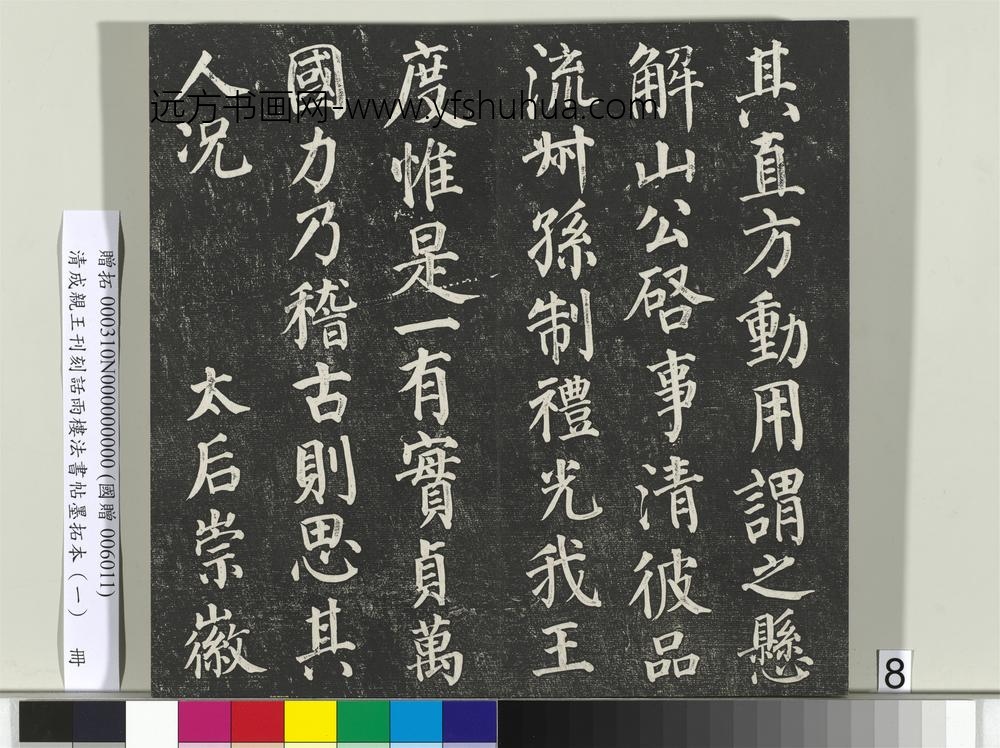 其直方動用謂之懸
解山公啓事清彼品
流叔孫制禮光我王
度惟是一有實貞萬
國力乃稽古則思其
人況 太后崇徽
远方书画网-www.yfshuhua.com
贈拓 000310N000000000 (國贈 006011)
清成親王刊刻詒晉樓法書帖墨拓本（一） 冊
8